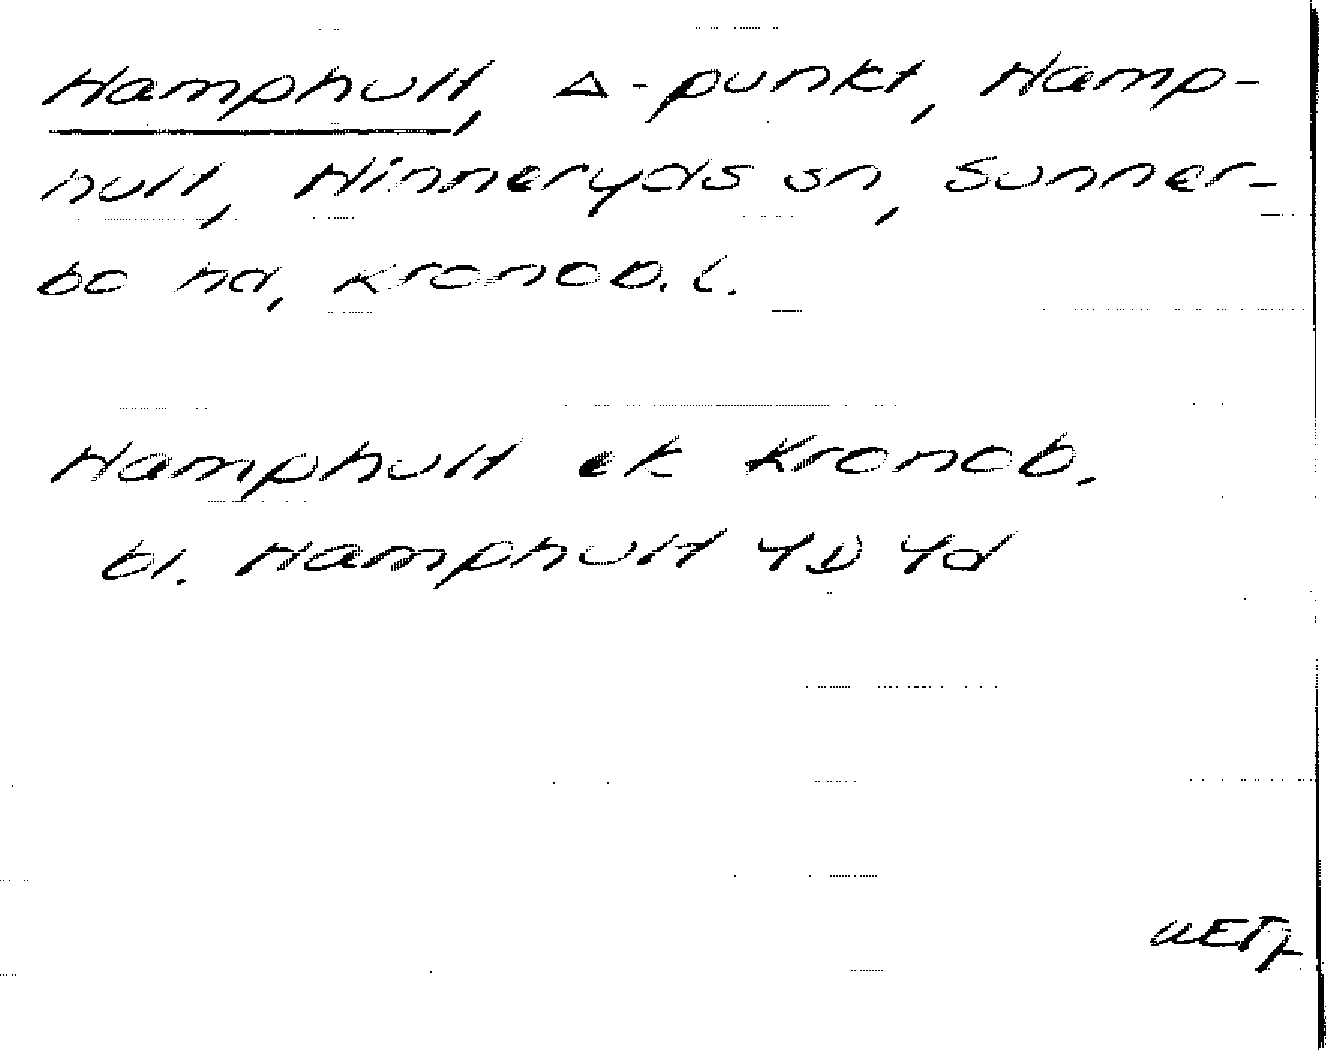 Hamphult, △-punkt, Hamp-
hult, Hinneryds sn, Sunner-
bo hd, Kronob. l.
Hamphult ek Kronob.
bl. Hamphult 4D 4d